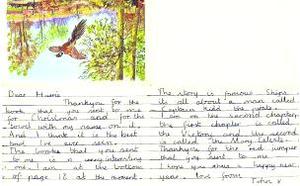 Dear Hume
Thankyou for the
book that you sent to me
for Christmas and for the
towel with my name on it.
And I think it is the best
book I've ever seen.
The book that you sent
to me is a very interesting
one. I am at the bottom
of page 18 at the moment.
The story is famous Ships
its all about a man called
Captain Kidd the pirate.
I am on the second chapter,
the first chapter is called
the Victory and the second
is called the Mary Celeste
Thankyou for the red jumper
that you sent to me.
I hope you have a happy new
year. love from
John x